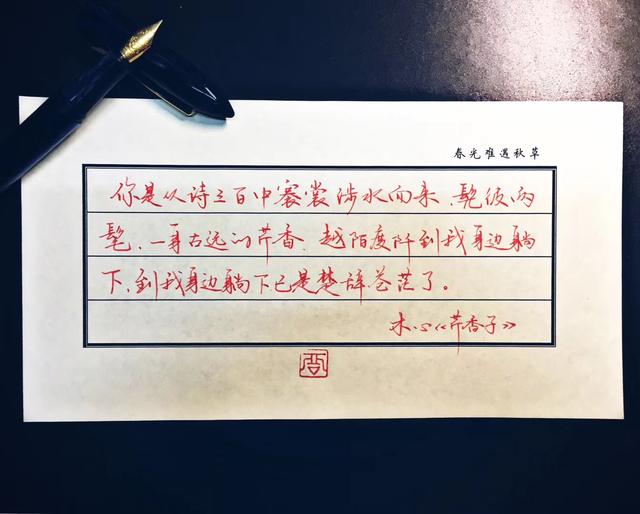 春光难遇秋草
你是从诗三百中褰裳涉水而来,髧彼两
髦,一身古远的芹香,越陌度阡到我身边躺
下,到我身边躺下已是楚辞苍茫了。
木心《芹香子》